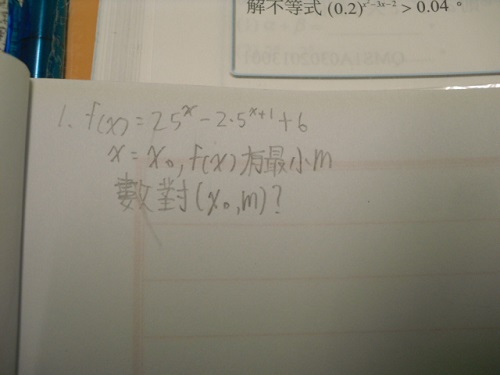 解不等式 (0.2)^{x²-3x-2} > 0.04。
1. f(x) = 25^x - 2·5^{x+1} + 6
x = x₀, f(x) 有最小 m
數對 (x₀, m)?